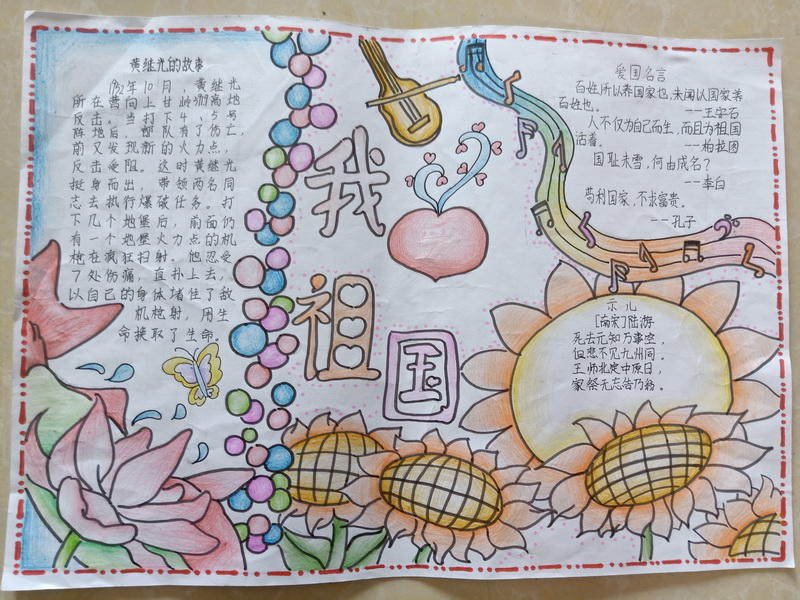 黄继光的故事
1952年10月，黄继光
所在营向上甘岭597.9高地
反击。当打下4、5号
阵地后，部队有了伤亡，
前又发现新的火力点，
反击受阻。这时黄继光
挺身而出，带领两名同
志去执行爆破任务。打
下几个地堡后，前面仍
有一个地堡火力点的机
枪在疯狂扫射。他忍受
7处伤痛，直扑上去，
以自己的身体堵住了敌
机枪射，用生
命换取了生命。
我
祖
国
爱国名言
百姓所以养国家也，未闻以国家养
百姓也。
——王安石
人不仅为自己而生，而且为祖国
活着。
——柏拉图
国耻未雪，何由成名？
——李白
苟利国家，不求富贵。
——孔子
示儿
[南宋]陆游
死去元知万事空，
但悲不见九州同。
王师北定中原日，
家祭无忘告乃翁。